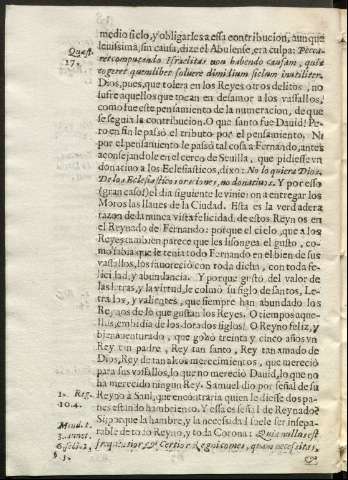 medio siclo, y obligarles a essa contribucion, aunque
leuissima, sin causa, dize el Abulense, era culpa: Pecca-
Quæst.
27.
ret computando Israelitas non habendo causam, quia
cogeret quemlibet soluere dimidium siclum inutiliter.
Dios, pues, que tolera en los Reyes otros delitos, no
sufre aquellos que tocan en desamor a los vassallos,
como fue este pensamiento de la numeracion, de que
se seguia la contribucion. O que santo fue Dauid! Pe-
ro en fin le passò el tributo por el pensamiento. Ni
por el pensamiento le passò tal cosa a Fernando, antes
aconsejandole en el cerco de Seuilla, que pidiesse vn
donatiuo a los Eclesiasticos, dixo: No lo quiera Dios.
De los Eclesiasticos oraciones, no donatiuos. Y por esso
(gran caso!) el dia siguiente le vinieron a entregar los
Moros las llaues de la Ciudad. Esta es la verdadera
razon de la nunca vista felicidad, de estos Reynos en
el Reynado de Fernando: porque el cielo, que a los
Reyes tambien parece que les lisongea el gusto, co-
mo sabia que le tenia todo Fernando en el bien de sus
vassallos, los fauoreciò con toda dicha, con toda fe-
licidad, y abundancia. Y porque gustò del valor de
las letras, y la virtud, le colmò su siglo de santos, Le-
trados, y valientes, que siempre han abundado los
Reynos de lo que gustan los Reyes. O tiempos aque-
llos, embidia de los dorados siglos! O Reyno feliz, y
bienauenturado, que gozò treinta y cinco años vn
Rey tan padre, Rey tan santo, Rey tan amado de
Dios, Rey de tan altos merecimientos, que mereciò
para sus vassallos, lo que no mereciò Dauid, lo que no
ha merecido ningun Rey. Samuel dio por señal de su
1. Reg.
10. 4.
Reyno a Saul, que encontraria quien le diesse dos pa-
nes estando hambriento. Y essa es señal de Reynado?
Si, porque la hambre, y la necessidad suele ser insepa-
rable de todo Reyno, y toda Corona: